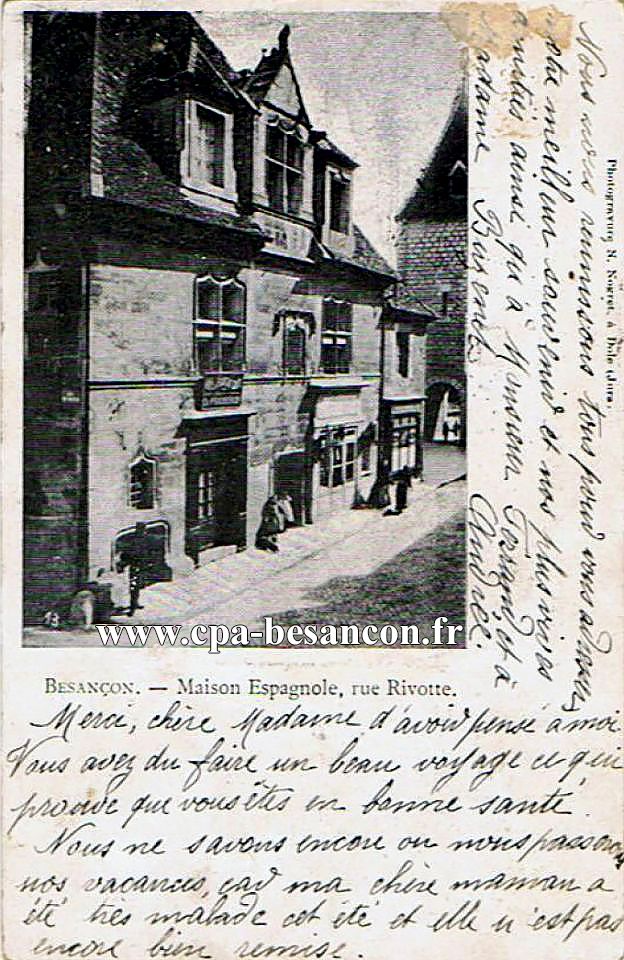 BESANÇON. — Maison Espagnole, rue Rivotte.
Merci, chère Madame d'avoir pensé à moi
Vous avez du faire un beau voyage ce qui
prouve que vous êtes en bonne santé.
Nous ne savons encore ou nous passerons
nos vacances, car ma chère maman a
été très malade cet été et elle n'est pas
encore bien remise.
Nous nous réunissons tous pour vous adresser
notre meilleur souvenir et nos plus vives
amitiés ainsi qu'à Monsieur et à
Madame
Andrée.
Photogravure N. Nogret, à Dole (Jura.
13
www.cpa-besancon.fr